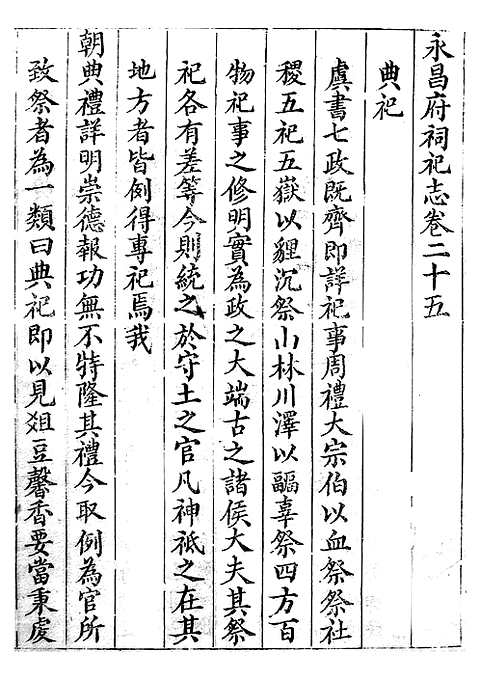 永昌府祠祀志卷二十五
典祀
虞書七政既齊即詳祀事周禮大宗伯以血祭祭社
稷五祀五嶽以貍沉祭山林川澤以疈辜祭四方百
物祀事之修明實為政之大端古之諸侯大夫其祭
祀各有差等今則統之於守土之官凡神祗之在其
地方者皆例得專祀焉我
朝典禮詳明崇德報功無不特隆其禮今取例為官所
致祭者為一類曰典祀即以見俎豆馨香要當秉虔